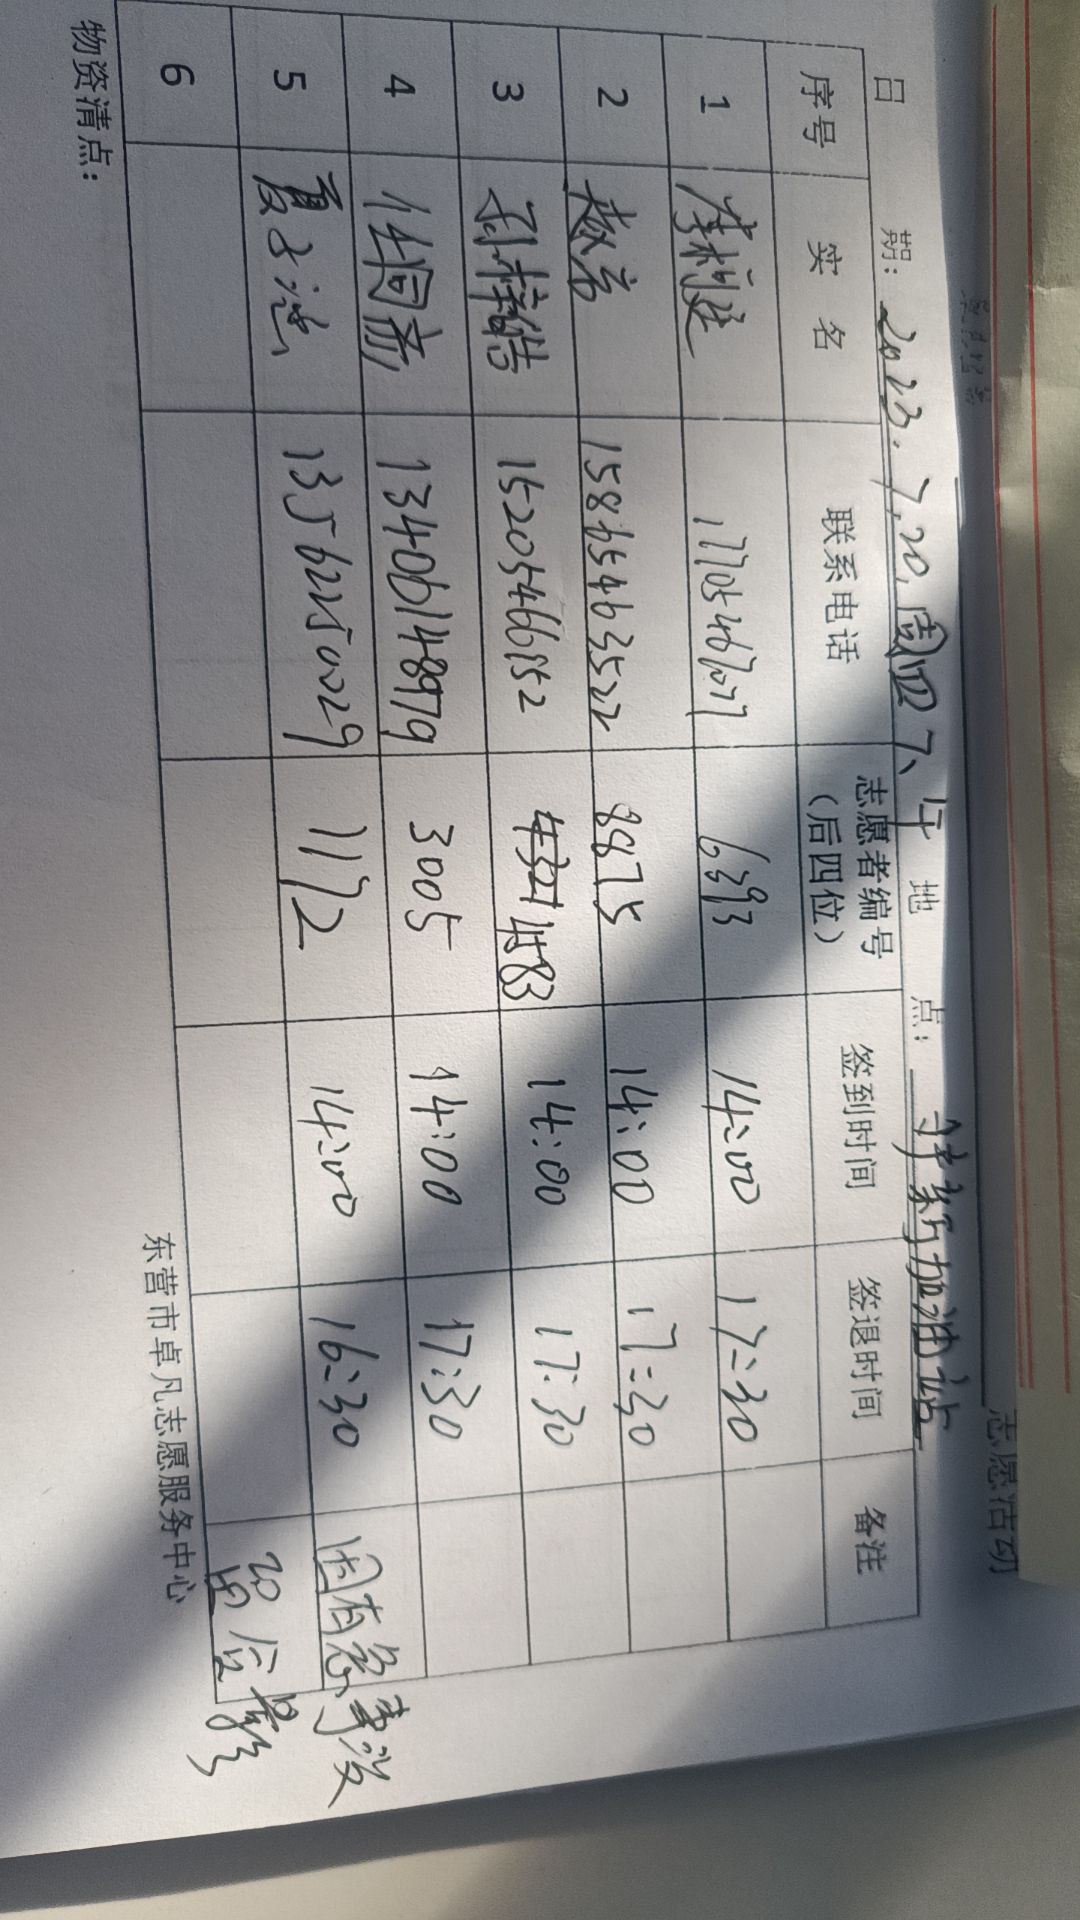 志愿活动
日 期: 2023.7.20.周四下午 地 点: 新加油站
序号 实 名 联系电话 志愿者编号（后四位） 签到时间 签退时间 备注
1 17705467077 6393 14:00 17:30
2 15865463522 8875 14:00 17:30
3 孙梓皓 15205466952 4583 14:00 17:30
4 任同彦 13406148979 3005 14:00 17:30
5 夏 13562250029 1172 14:00 16:30 因有急事没
留合影
6
物资清点：
东营市卓凡志愿服务中心